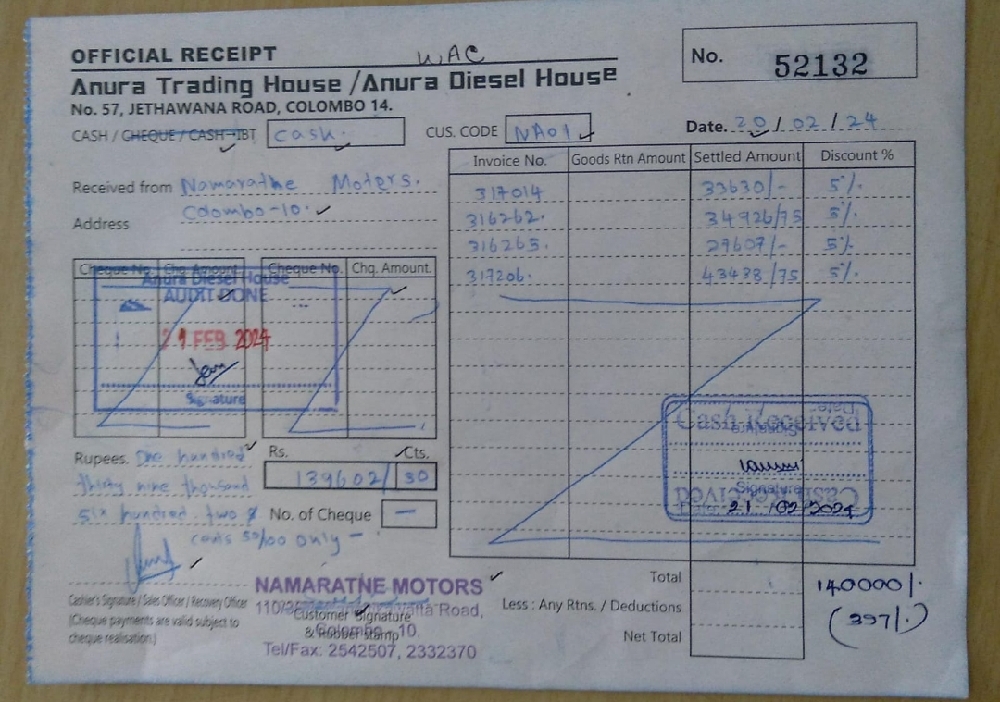 OFFICIAL RECEIPT
WAC
No. 52132
Anura Trading House / Anura Diesel House
No. 57, JETHAWANA ROAD, COLOMBO 14.
CASH / CHEQUE / CASH-IBT cash.
CUS. CODE NA01
Date. 20 / 02 / 24
Received from Namarathe Moters.
Address Coombo-10.
Invoice No. Goods Rtn Amount Settled Amount Discount %
317014 33630/- 5%.
316262. 34926/75 5%.
316265. 27607/- 5%
317206. 43438/75 5%.
Cheque No. Chq. Amount Cheque No. Chq. Amount.
Anura Diesel House
AUDIT DONE
21 FEB 2024
Signature
Cash Received
Date:
Signature
Signature
Cash Received
21 /02/2024
Rupees. One hundred
thirty nine thousand
six hundred two &
cents 50/00 only -
Rs. Cts.
139602/ 50
No. of Cheque -
Cashier's Signature / Sales Officer / Recovery Officer
(Cheque payments are valid subject to
cheque realisation.)
NAMARATNE MOTORS
Road,
Customer Signature
Colombo - 10
& Rubber Stamp
Tel/Fax: 2542507, 2332370
Total 140000/.
Less : Any Rtns. / Deductions (397/.)
Net Total